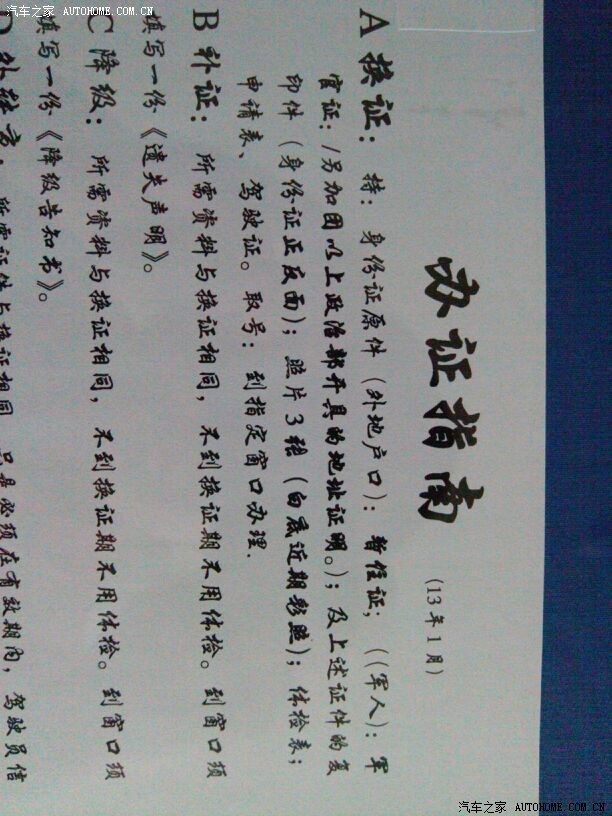 汽车之家 AUTOHOME.COM.CN
办证指南
(13年1月)
A 换证：持：身份证原件（外地户口）：暂住证；（（军人）：军
官证：/另加团以上政治部开具的地址证明。）；及上述证件的复
印件（身份证正反面）；照片3张（白底近期彩照）；体检表；
申请表、驾驶证。取号：到指定窗口办理.
B 补证：所需资料与换证相同，不到换证期不用体检。到窗口须
填写一份《遗失声明》。
C 降级：所需资料与换证相同，不到换证期不用体检。到窗口须
填写一份《降级告知书》。
所需证件与换证相同，只是必须在有效期内，驾驶员信
汽车之家 AUTOHOME.COM.CN